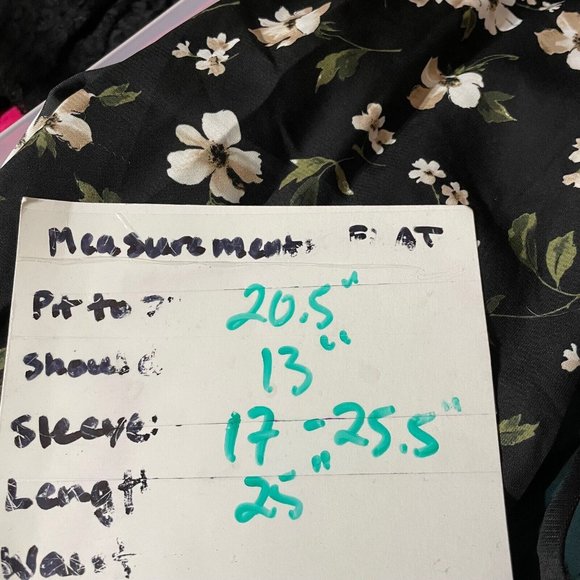 Measurements FLAT
Pit to P 20.5"
Should 13"
Sleeve: 17 - 25.5"
Length 25"
Waist